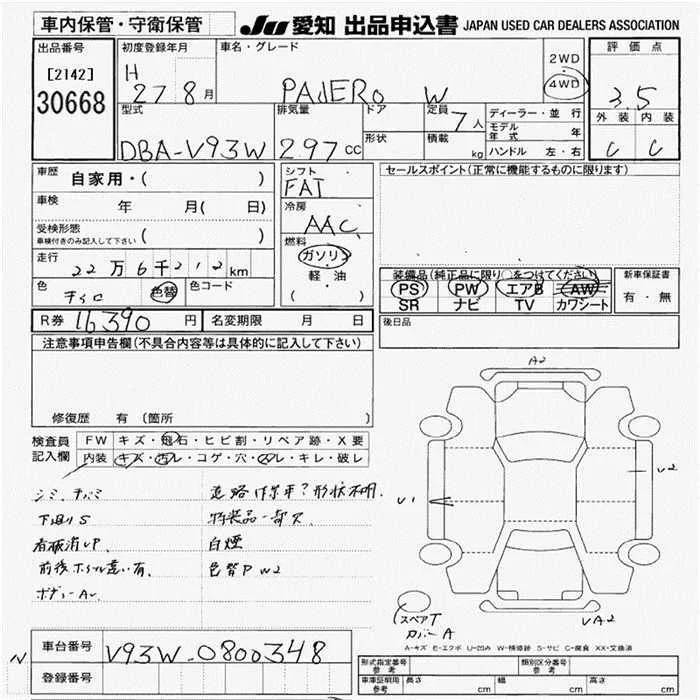 車内保管・守衛保管 JU 愛知 出品申込書 JAPAN USED CAR DEALERS ASSOCIATION
出品番号 初度登録年月 車名・グレード 2WD 評価点
[2142] H 27 8月 PAJERO W 4WD 3.5
30668 型式 排気量 ドア 定員 7人 ディーラー・並行 外装 内装
DBA-V93W 2.97cc 形状 積載 kg モデル年式 年 C C
ハンドル 左・右
車歴 自家用・( ) シフト FAT セールスポイント(正常に機能するものに限ります)
車検 年 月( 日) 冷房 AAC
受検形態 ( )
車検付きのみ記入して下さい
燃料 ガソリン
走行 22万6千212km 軽・油 装備品(純正品に限り○をつけてください) 新車保証書
色 色替 色コード ( ) PS PW エアB AW 有・無
SR ナビ TV カワシート
R券 16390円 名変期限 月 日 後日品
注意事項申告欄(不具合内容等は具体的に記入して下さい)
修復歴 有(箇所
検査員 FW キズ・飛石・ヒビ割・リペア跡・X要
記入欄 内装 キズ・汚レ・コゲ・穴・スレ・キレ・破レ
下廻りS 特装品一部欠
看板消UP 白煙
色替PW2
A2
U1
U2
スペアT
カバーA
UA2
A-キズ E-エクボ U-凹み W-補修跡 S-サビ C-腐食 XX-交換済
車台番号 V93W-0800348
登録番号
形式指定番号 参考 類別区分番号 参考
車庫証明用 参考 長さ cm 幅 cm 高さ cm